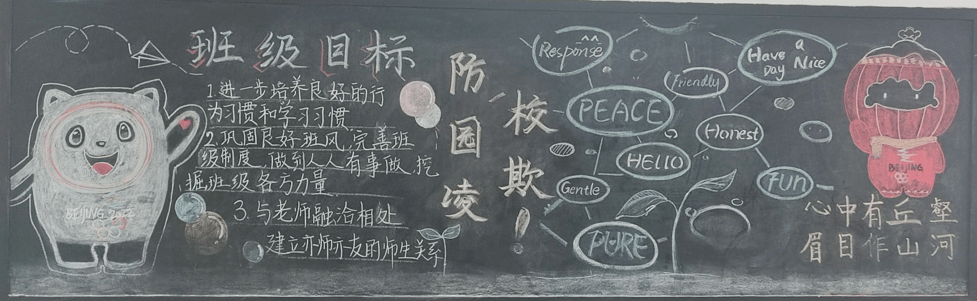 班级目标
1.进一步培养良好的行
为习惯和学习习惯
2.巩固良好班风,完善班
级制度,做到人人有事做,挖
掘班级各方力量
3.与老师融洽相处
建立亦师亦友的师生关系
BEIJING 2022
防园凌
校欺!
Response
Friendly
Have a Nice Day
PEACE
Honest
HELLO
Gentle
FUN
PURE
BEIJING
心中有丘壑
眉目作山河